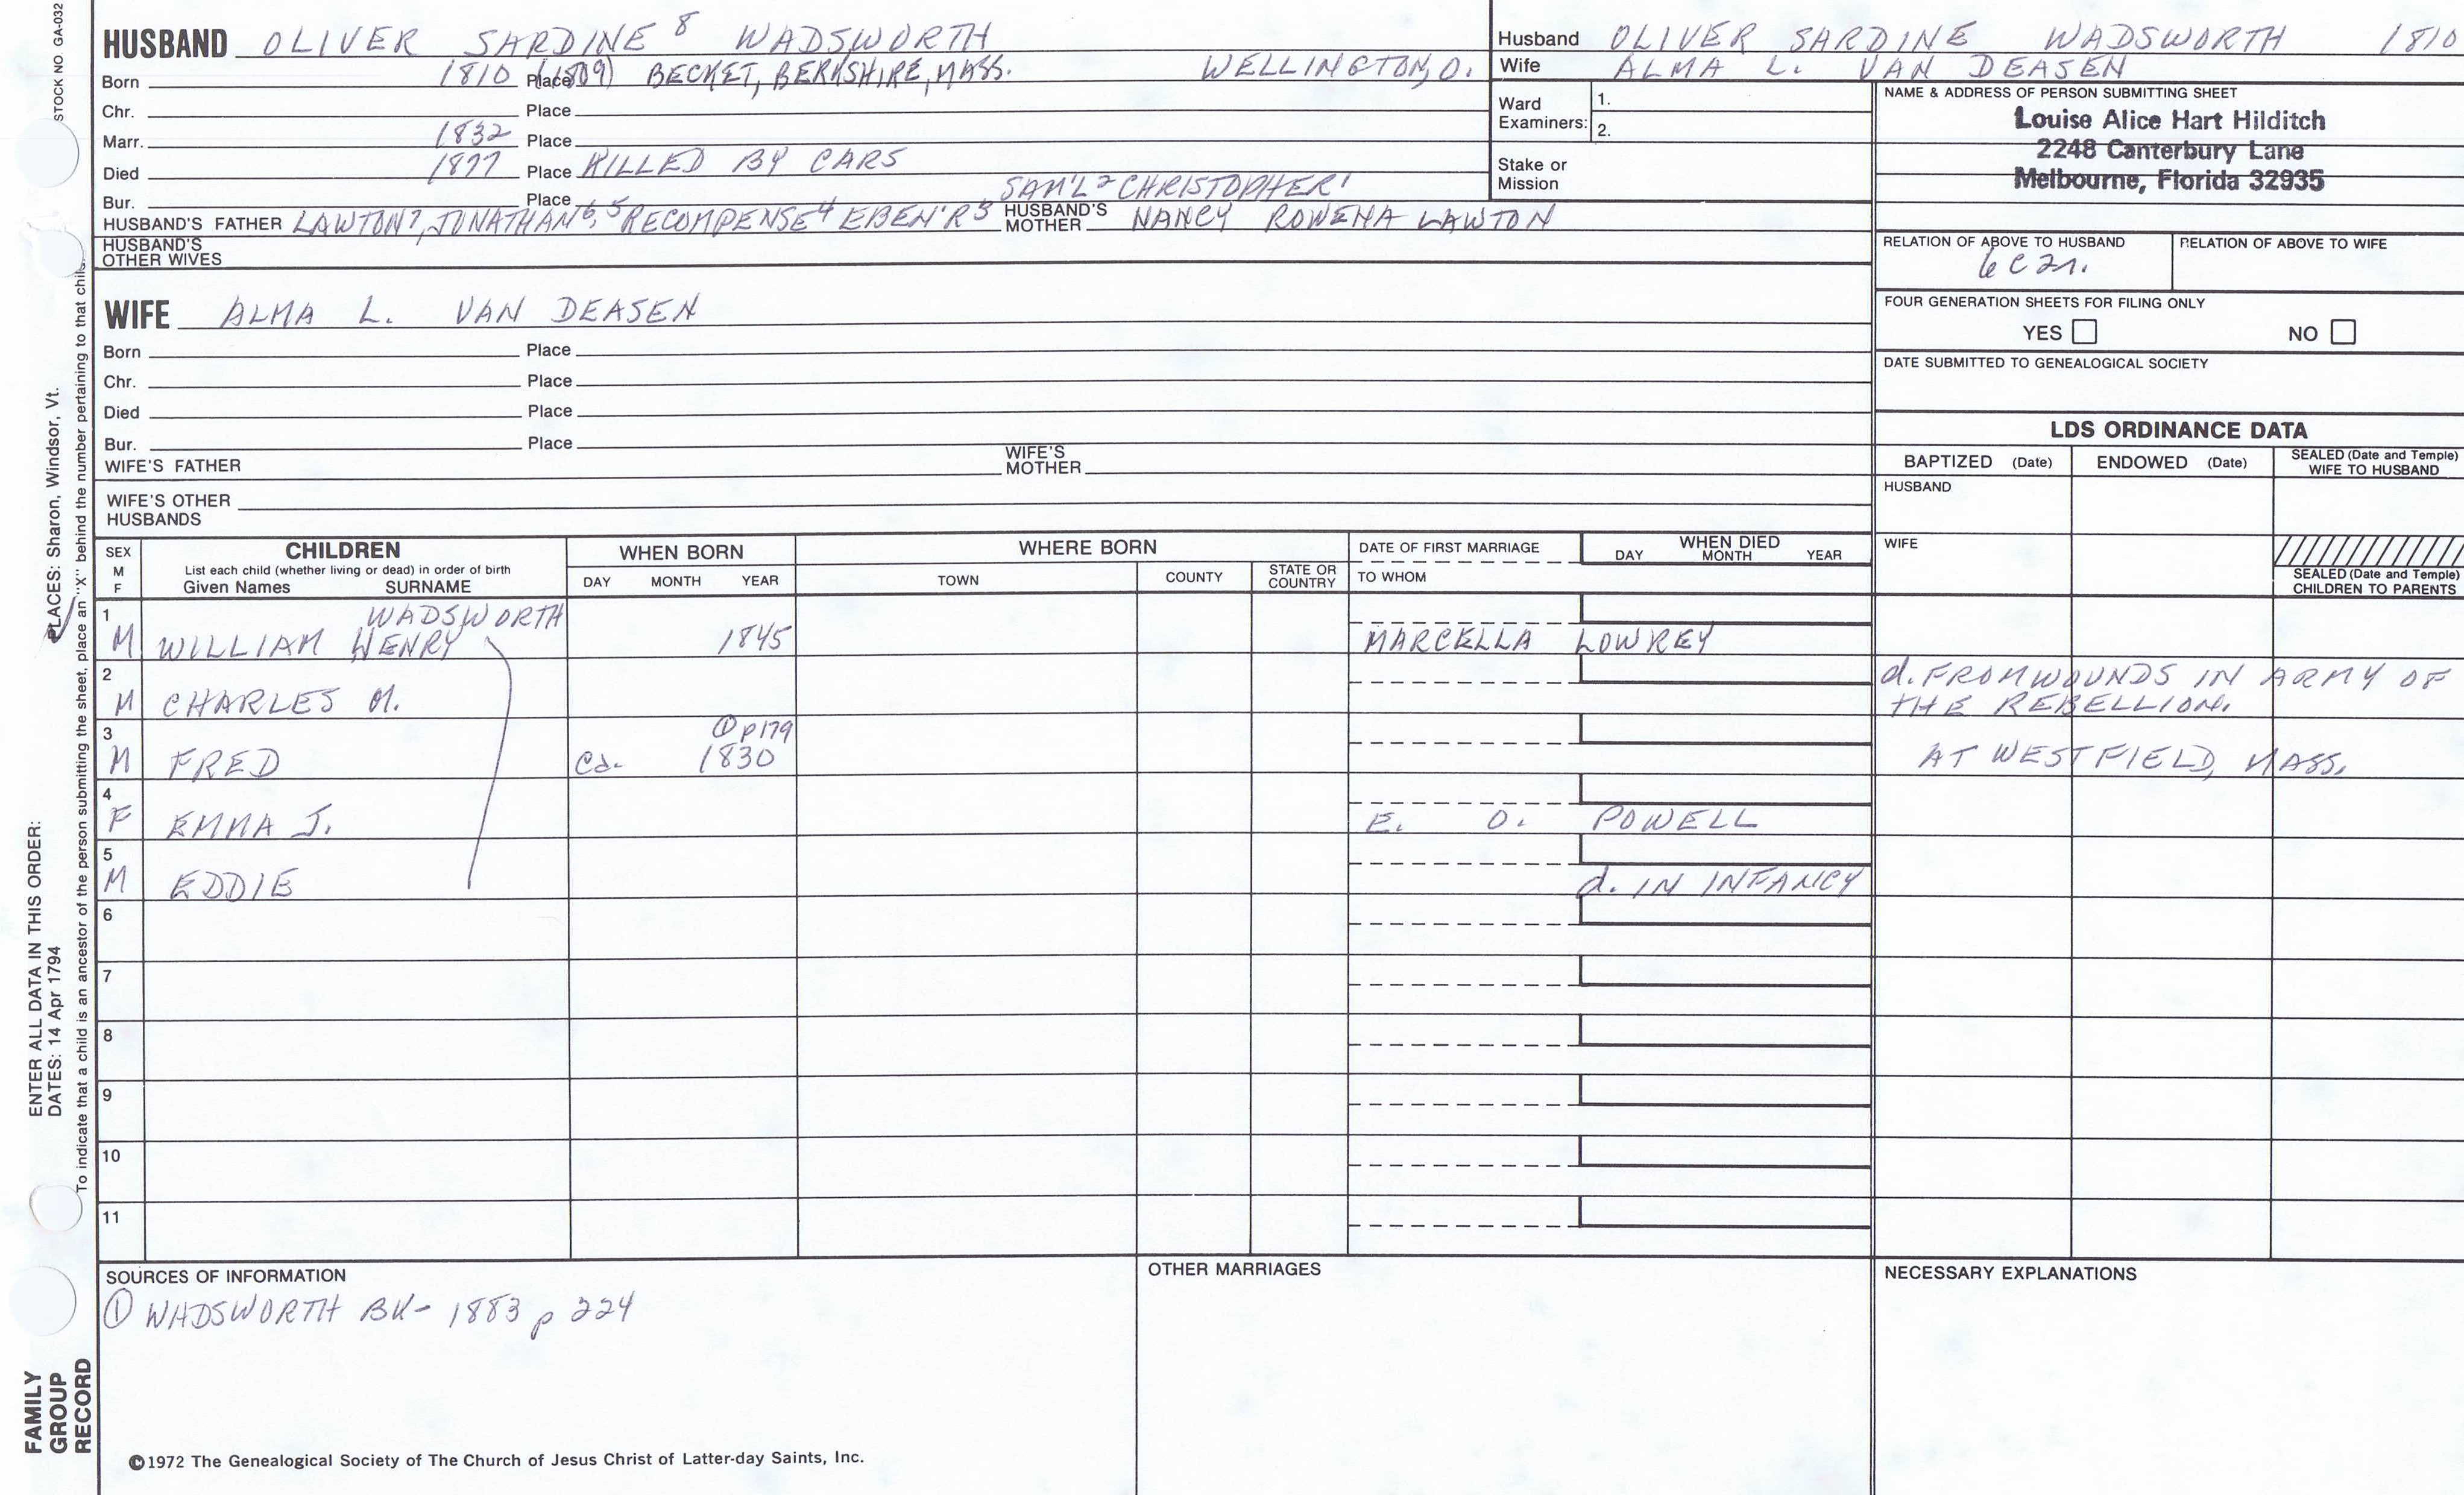 STOCK NO. GA-032
PLACES: Sharon, Windsor, Vt.
ENTER ALL DATA IN THIS ORDER:
DATES: 14 Apr 1794
To indicate that a child is an ancestor of the person submitting the sheet, place an "X" behind the number pertaining to that child.
FAMILY
GROUP
RECORD
HUSBAND OLIVER SARDINE 8 WADSWORTH
Born 1810 Place (1809) BECKET, BERKSHIRE, MASS. WELLINGTON, O.
Chr. Place
Marr. 1832 Place
Died 1877 Place KILLED BY CARS
Bur. Place SAM'L 2 CHRISTOPHER 1
HUSBAND'S FATHER LAWTON 7, JONATHAN 6, 5 RECOMPENSE 4 EBEN'R 3 HUSBAND'S MOTHER NANCY ROWENA LAWTON
HUSBAND'S
OTHER WIVES
WIFE ALMA L. VAN DEASEN
Born Place
Chr. Place
Died Place
Bur. Place
WIFE'S FATHER WIFE'S MOTHER
WIFE'S OTHER
HUSBANDS
Husband OLIVER SARDINE WADSWORTH 1810
Wife ALMA L. VAN DEASEN
Ward
Examiners:
1.
2.
Stake or
Mission
NAME & ADDRESS OF PERSON SUBMITTING SHEET
Louise Alice Hart Hilditch
2248 Canterbury Lane
Melbourne, Florida 32935
RELATION OF ABOVE TO HUSBAND RELATION OF ABOVE TO WIFE
6C2r.
FOUR GENERATION SHEETS FOR FILING ONLY
YES NO
DATE SUBMITTED TO GENEALOGICAL SOCIETY
LDS ORDINANCE DATA
BAPTIZED (Date) ENDOWED (Date) SEALED (Date and Temple)
WIFE TO HUSBAND
HUSBAND
WIFE
SEALED (Date and Temple)
CHILDREN TO PARENTS
SEX
M
F
CHILDREN
List each child (whether living or dead) in order of birth
Given Names SURNAME
WHEN BORN
DAY MONTH YEAR
WHERE BORN
TOWN COUNTY STATE OR COUNTRY
DATE OF FIRST MARRIAGE
TO WHOM
WHEN DIED
DAY MONTH YEAR
1 WADSWORTH
M WILLIAM HENRY 1845 MARCELLA LOWREY
2 d. FROM WOUNDS IN ARMY OF
M CHARLES M. THE REBELLION.
3 ① p179
M FRED Ca. 1830 AT WESTFIELD, MASS.
4
F EMMA J. E. O. POWELL
5
M EDDIE d. IN INFANCY
6
7
8
9
10
11
SOURCES OF INFORMATION
① WADSWORTH BK- 1883 p 224
OTHER MARRIAGES
NECESSARY EXPLANATIONS
©1972 The Genealogical Society of The Church of Jesus Christ of Latter-day Saints, Inc.